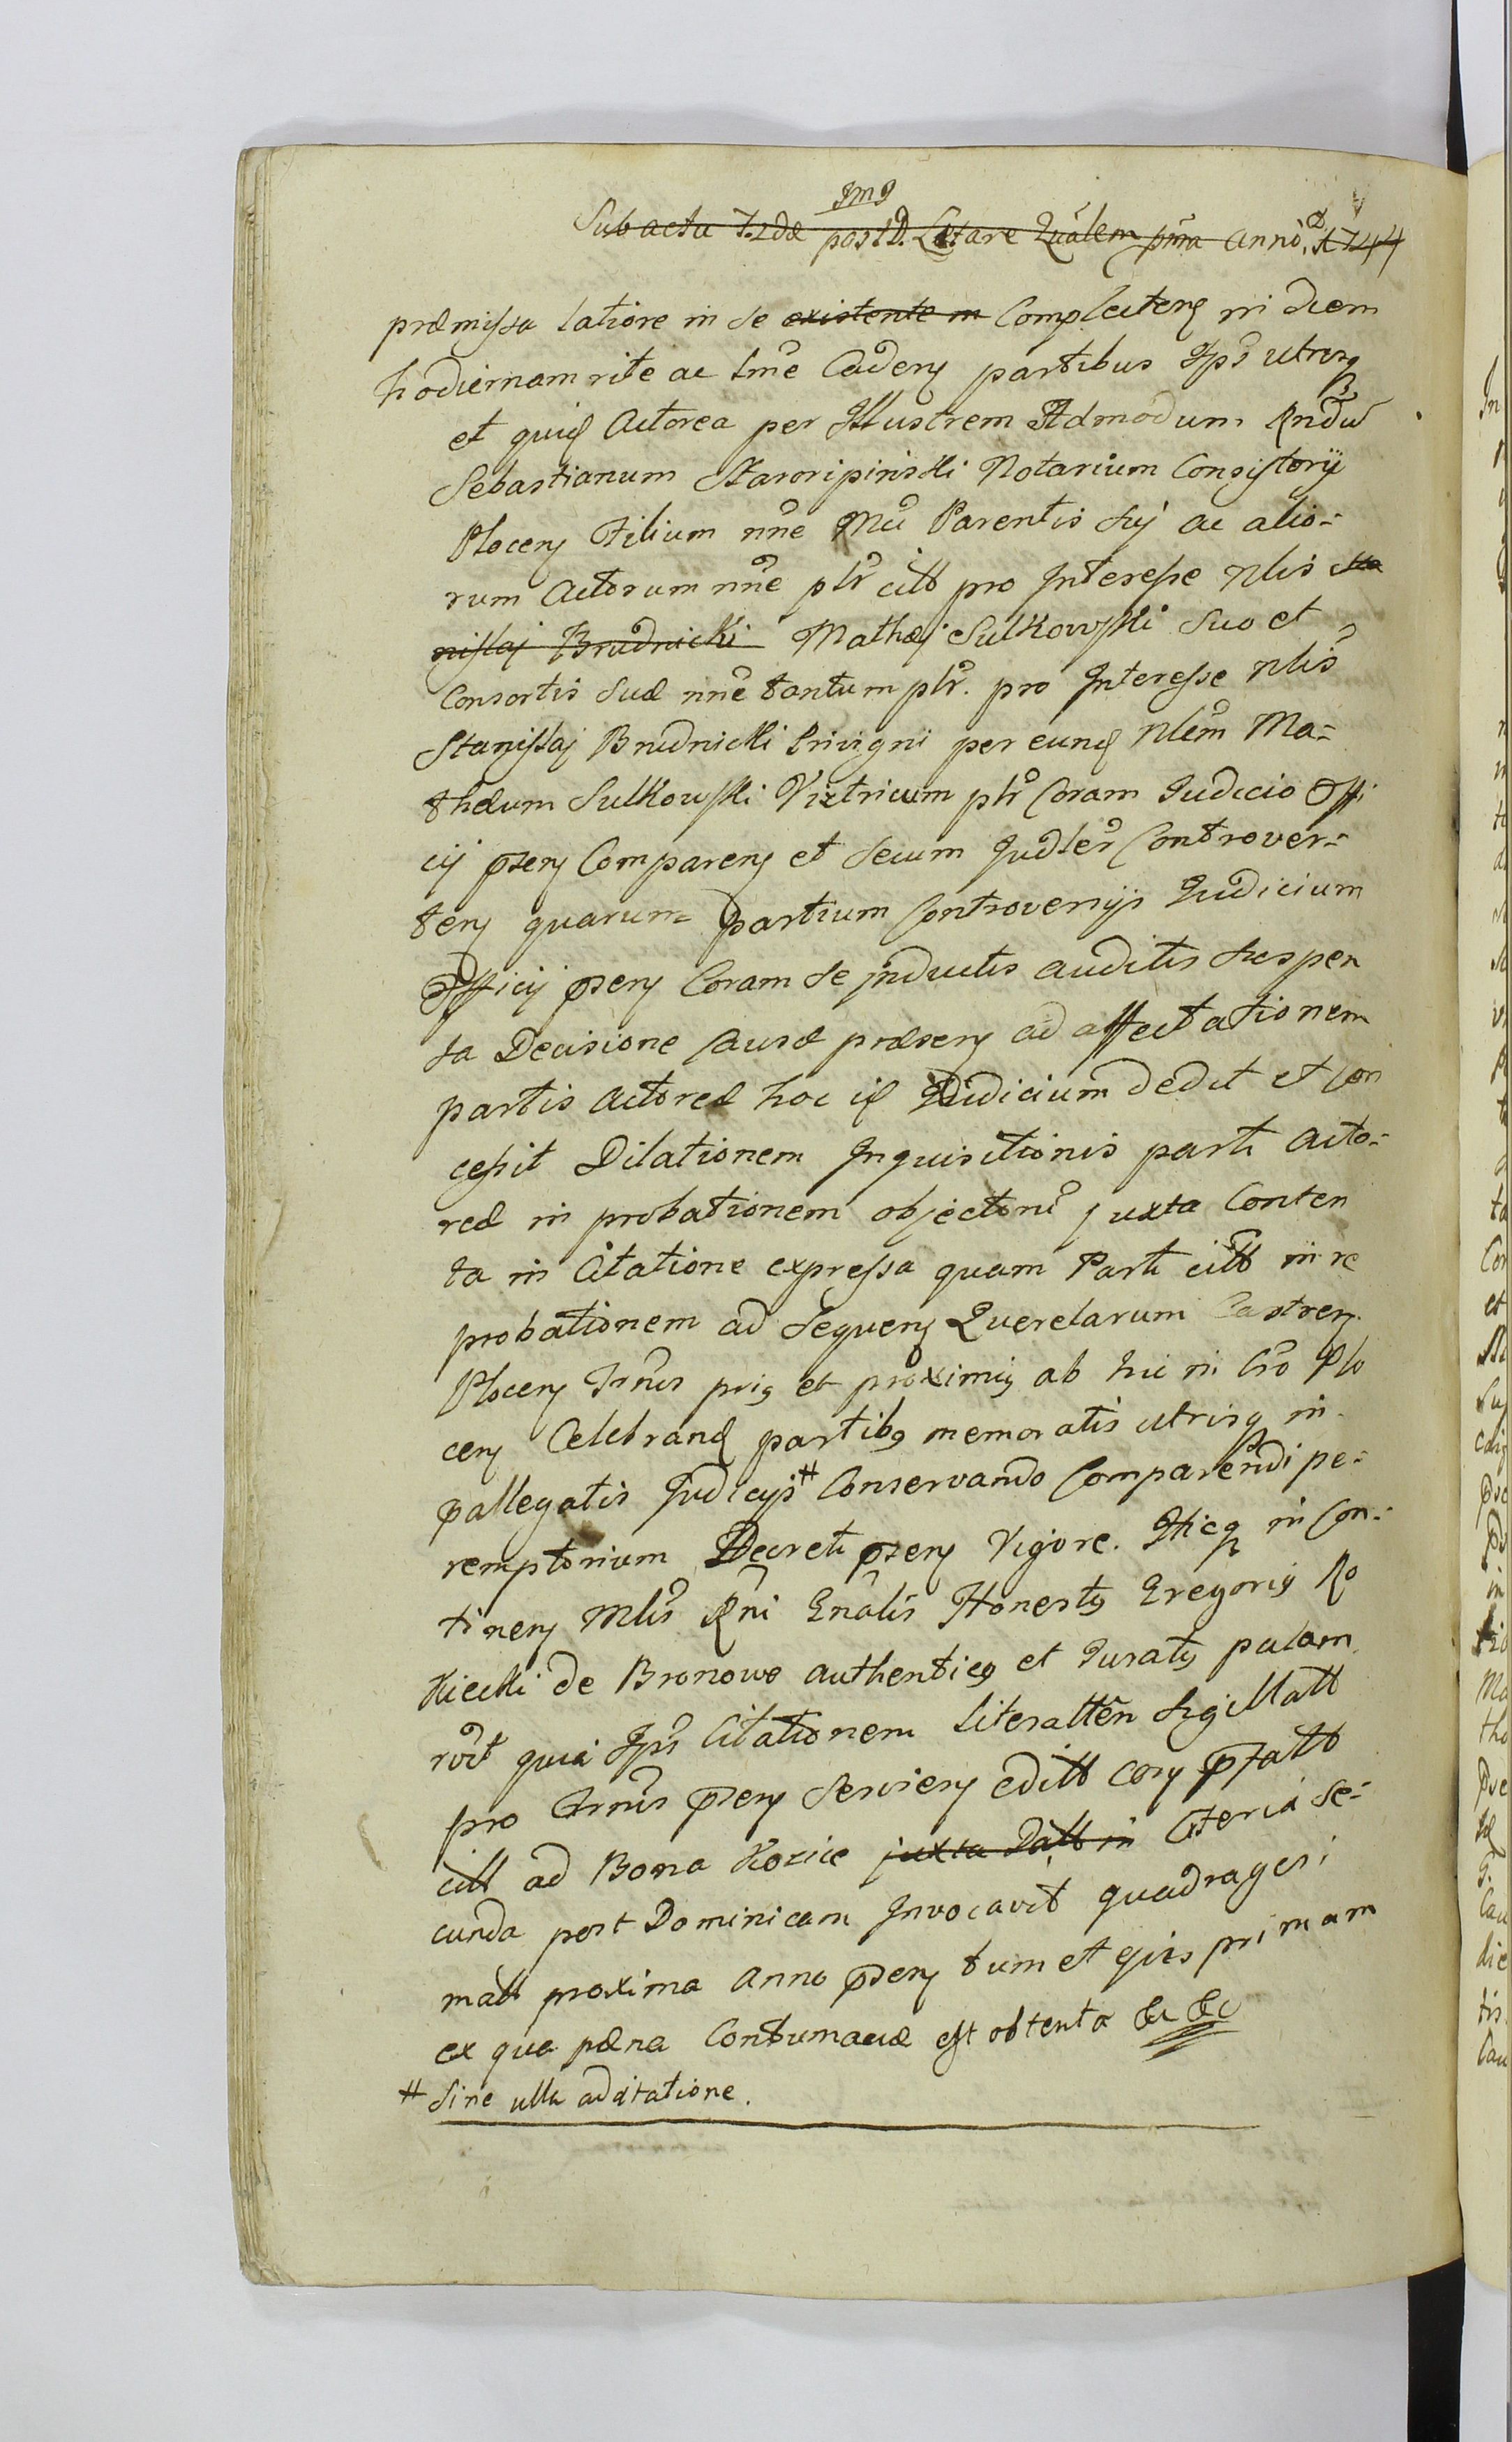 Jmd
Sub actu f. 2dæ post D. Lætare Qualem pma anno D. 1744
præmissa latiore in se existente in Complecten in diem
hodiernam rite ac lme Caden partibus Ips utrisq
et quid Actorea per Illustrem Admodum Rndum
Sebastianum Staroripinski Notarium Consistorij
Plocen Filium nne Mci Parentis Sui ac alio=
rum Actorum nne plr citt pro Interesse Nlis Sta
nislai Brudnicki Mathæi Sulkowski Suo et
Consortis Suæ nne tantum plr. pro Interesse Nlis
Stanislai Brudnicki Privigni per eund Nlem Ma=
thæum Sulkowski Vitricum plr Coram Judicio Offi
cij psen Comparen et Secum Judler Controver=
ten quarum= partium Controversijs Judicium
Officij psen Coram se inductis auditis Suspen
sa Decisione Causæ præsen ad affectationem
partis Actoreæ hoc id Judicium dedit et Con
cessit Dilationem Inquisitionis parti Acto=
reæ in probationem objectoru juxta Conten
ta in Citatione expressa quam Parti citt in re
probationem ad Sequen Querelarum Castren.
Plocen Trnos pris et proximis ab hic in Cro Plo
cen Celebrand partibg memoratis utrisq in
pallegatis Judicijs # Conservando Comparendi pe=
remptorium Decreti psen Vigore. Hicq in Con=
tinen Mlis Rni Gnalis Honestg Gregorig Ro
kicki de Bronowo authenticg et Juratg palam
rcvt quia Ips Citationem Literatten Sigillatt
pro Trnis psen Servien editt Con psatt
citt ad Bona Kozice juxta Datt in feria se=
cunda post Dominicam Invocavit quadragesi
matt proxima Anno psen tum et ejus primam
ex qua pæna Contumaciæ est obtenta &c &c
# Sine ulla adcitatione.